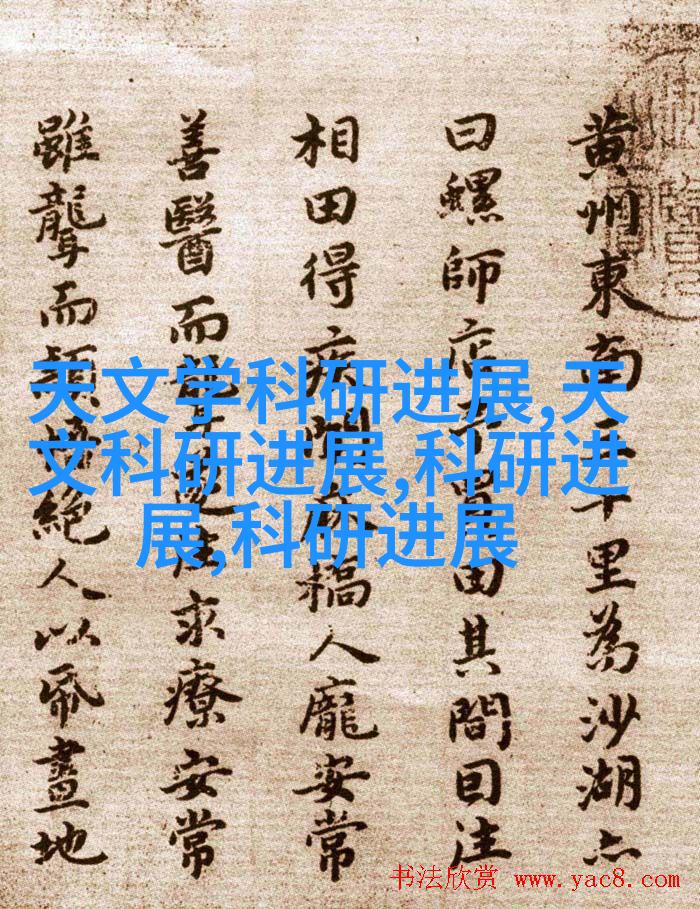 黄州東南三十里為沙湖亦
曰螺師店予買田其間因往
相田得疾聞麻橋人龐安常
善醫而聾遂往求療安常
雖聾而穎悟絕人以紙畫地
天文学科研进展,天
文科研进展,科研进
展,科研进展
书法欣赏 www.yac8.com